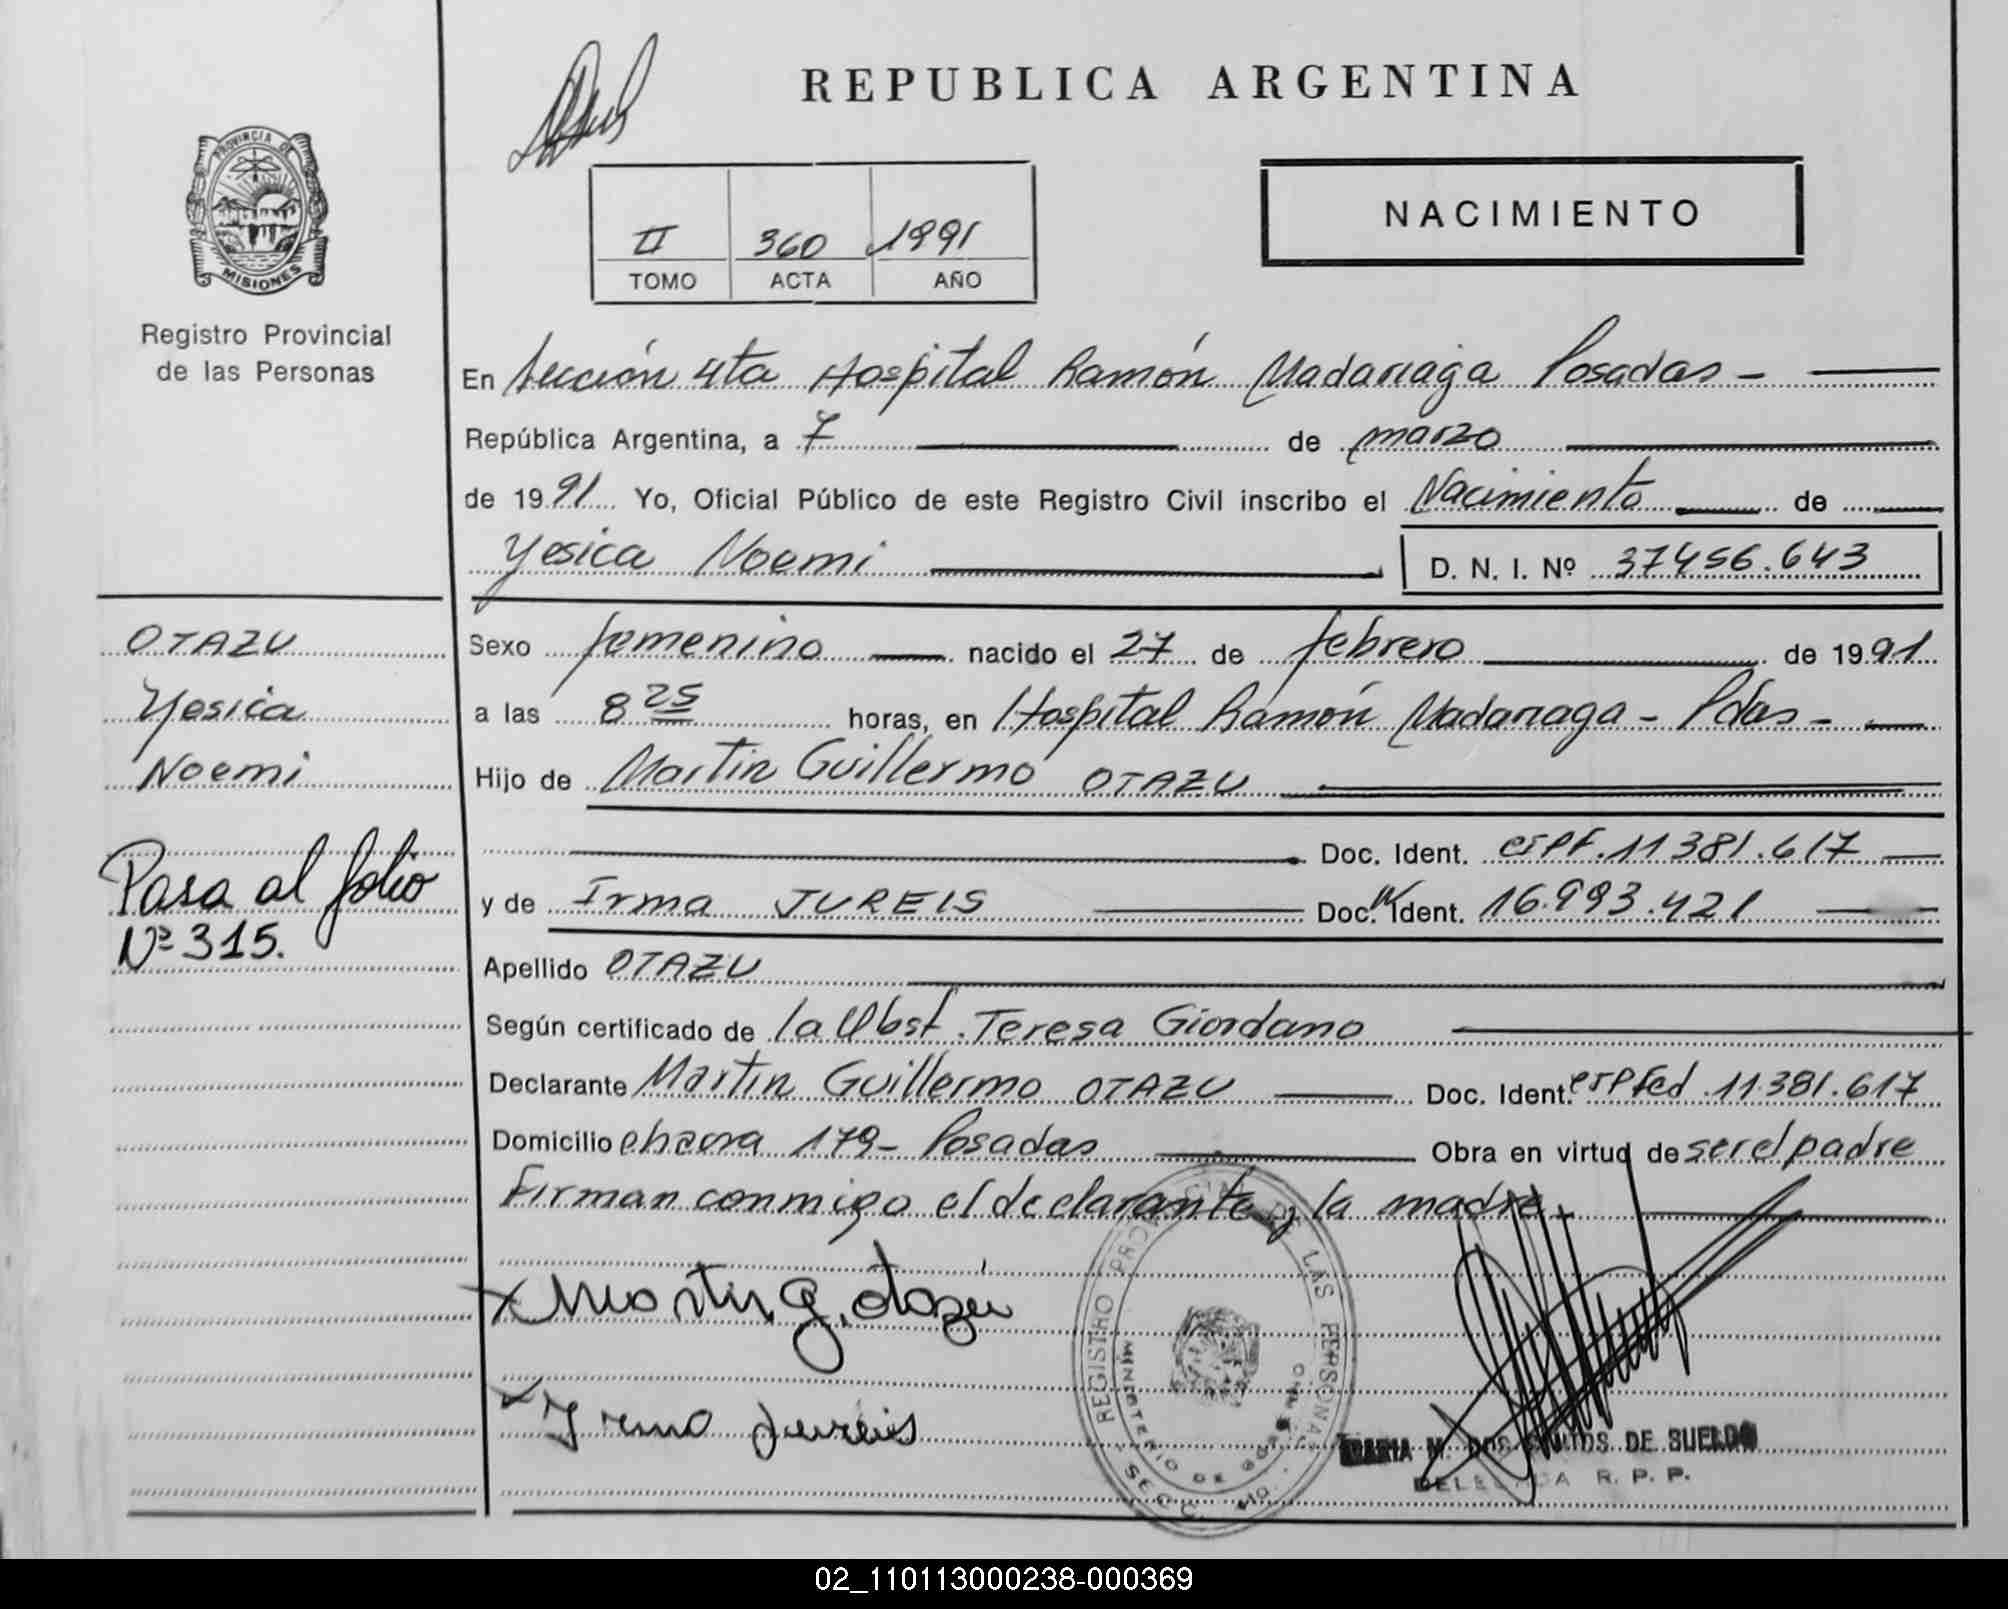 REPUBLICA ARGENTINA
PROVINCIA DE
MISIONES
Registro Provincial
de las Personas
II 360 1991
TOMO ACTA AÑO
NACIMIENTO
En Sección 4ta Hospital Ramón Madariaga Posadas -
República Argentina, a 7 de marzo
de 1991 Yo, Oficial Público de este Registro Civil inscribo el Nacimiento de
Yesica Noemi D. N. I. Nº 37456.643
OTAZU
Yesica
Noemi
Pasa al folio
Nº 315.
Sexo femenino nacido el 27 de febrero de 1991
a las 8 25 horas, en Hospital Ramón Madariaga - Pdas -
Hijo de Martin Guillermo OTAZU
Doc. Ident. CIPF. 11381.617
y de Irma JUREIS Doc. Ident. 16.993.421
Apellido OTAZU
Según certificado de la Obst. Teresa Giordano
Declarante Martin Guillermo OTAZU Doc. Ident. CIPFed. 11.381.617
Domicilio chacra 179 - Posadas Obra en virtud de ser el padre
Firman conmigo el declarante y la madre.
Martin G. Otazu
Irma Jureis
REGISTRO PROVINCIAL DE LAS PERSONAS
MINISTERIO DE GOBIERNO
SECC.
MARIA M. DOS SANTOS DE SUELDO
DELEGADA R. P. P.
02_110113000238-000369